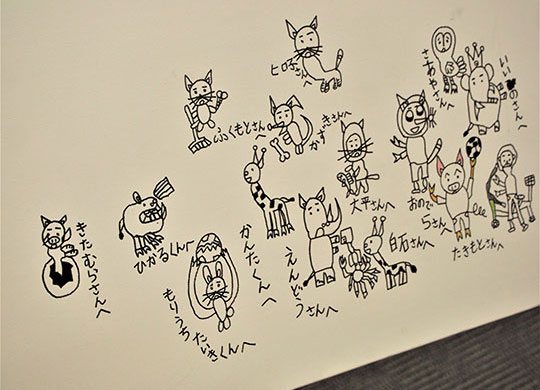 ヒロさんへ
さあやさんへ
いい♥のさんへ
ふくもとさん
かずきさんへ
大平さんへ
おので
らさんへ
たきもとさんへ
白石さんへ
えんどうさんへ
かんたくんへ
ひかるくんへ
もりうちたいきくんへ
きたむらさんへ